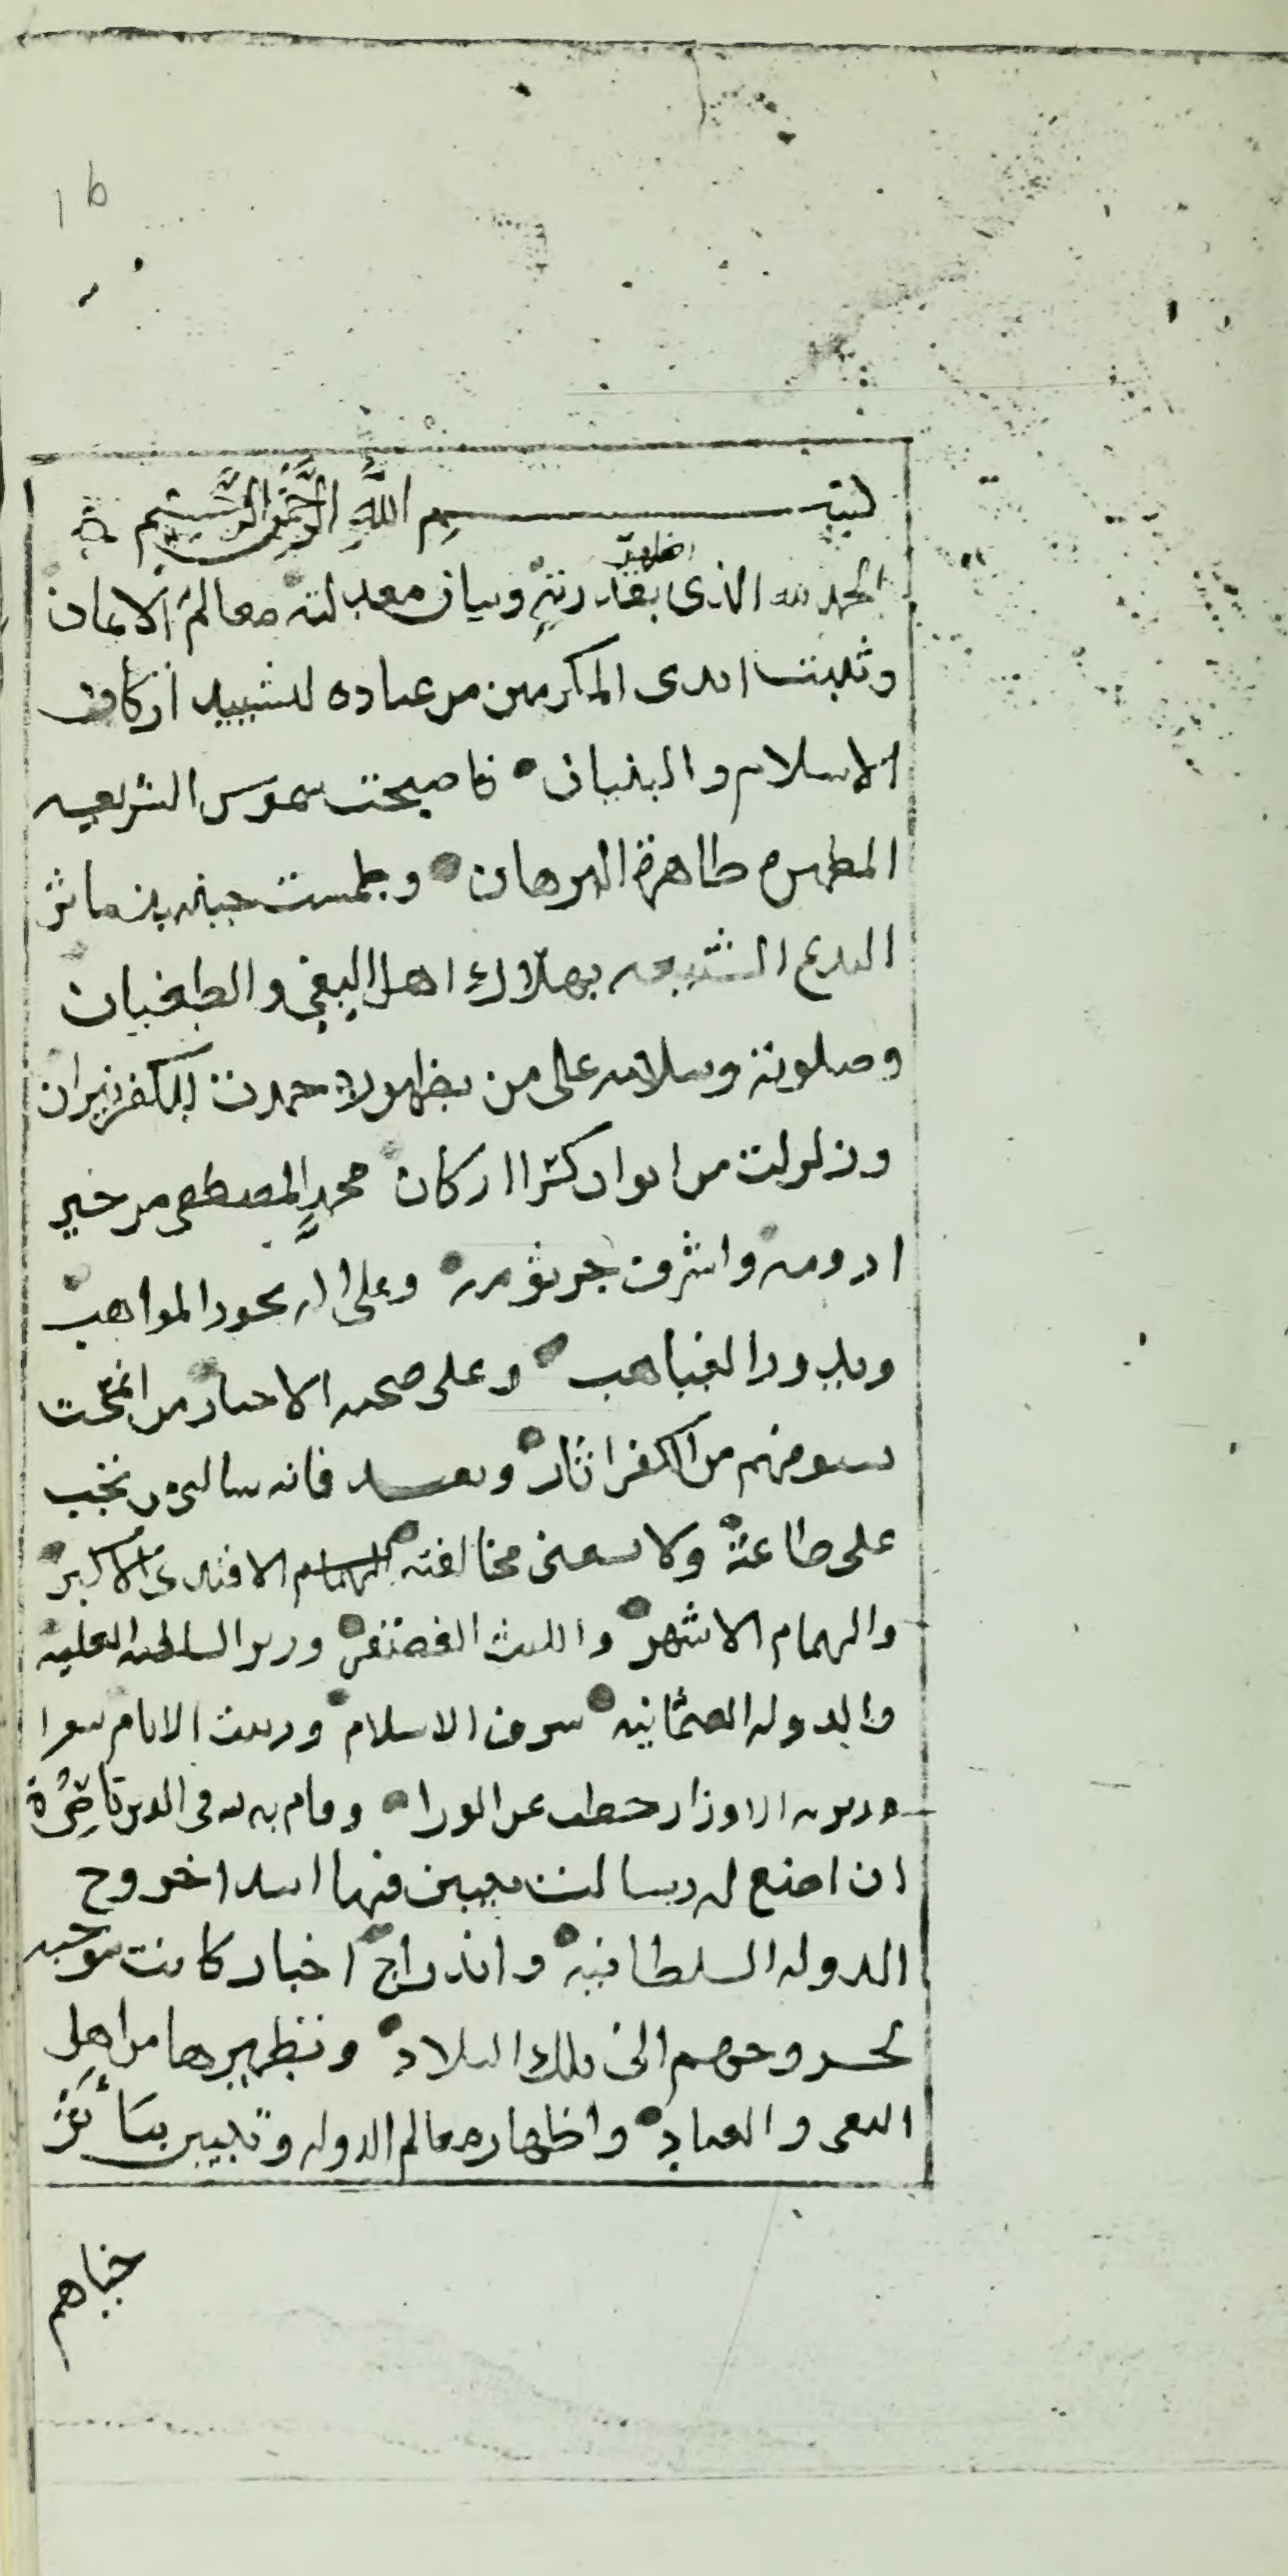 1b
بسم الله الرحمن الرحيم
الحمد لله الذى اظهر بقدرته وبيان معدلته معالم الايمان
وثبتت ايدى المكرمين من عباده لتشييد اركان
الاسلام والبنيان فاصبحت شموس الشريعه
المطهره ظاهرة البرهان وطمست ماثر
البدع الشنيعه بهلاك اهل البغي والطغيان
وصلوته وسلامه على من بظهوره خمدت للكفر نيران
وزلزلت من ايوان كسرا اركان محمد المصطفى من خير
ارومه واشرف جرثومه وعلى اله بحور المواهب
وبدور الغياهب وعلى صحبه الاخيار من انمحت
بسيوفهم من الكفر اثار وبعد فانه سالنى من تجب
على طاعته ولا يسعنى مخالفته الهمام الافندى الاكبر
والهمام الاشهر والليث الغضنفر وزير السلطنه العليه
والدوله العثمانيه شرف الاسلام وزينت الايام
الاوزار عن الورا وقام به لله فى الدين ناصرة
ان اصنع له رسالت يبين فيها ابتدا خروج
الدوله السلطانيه واندراج اخبار كانت موجبه
لخروجهم الى تلك البلاد وتطهيرها من اهل
البغى والعناد واظهار معالم الدوله وتبيين بتأثر
خباهم